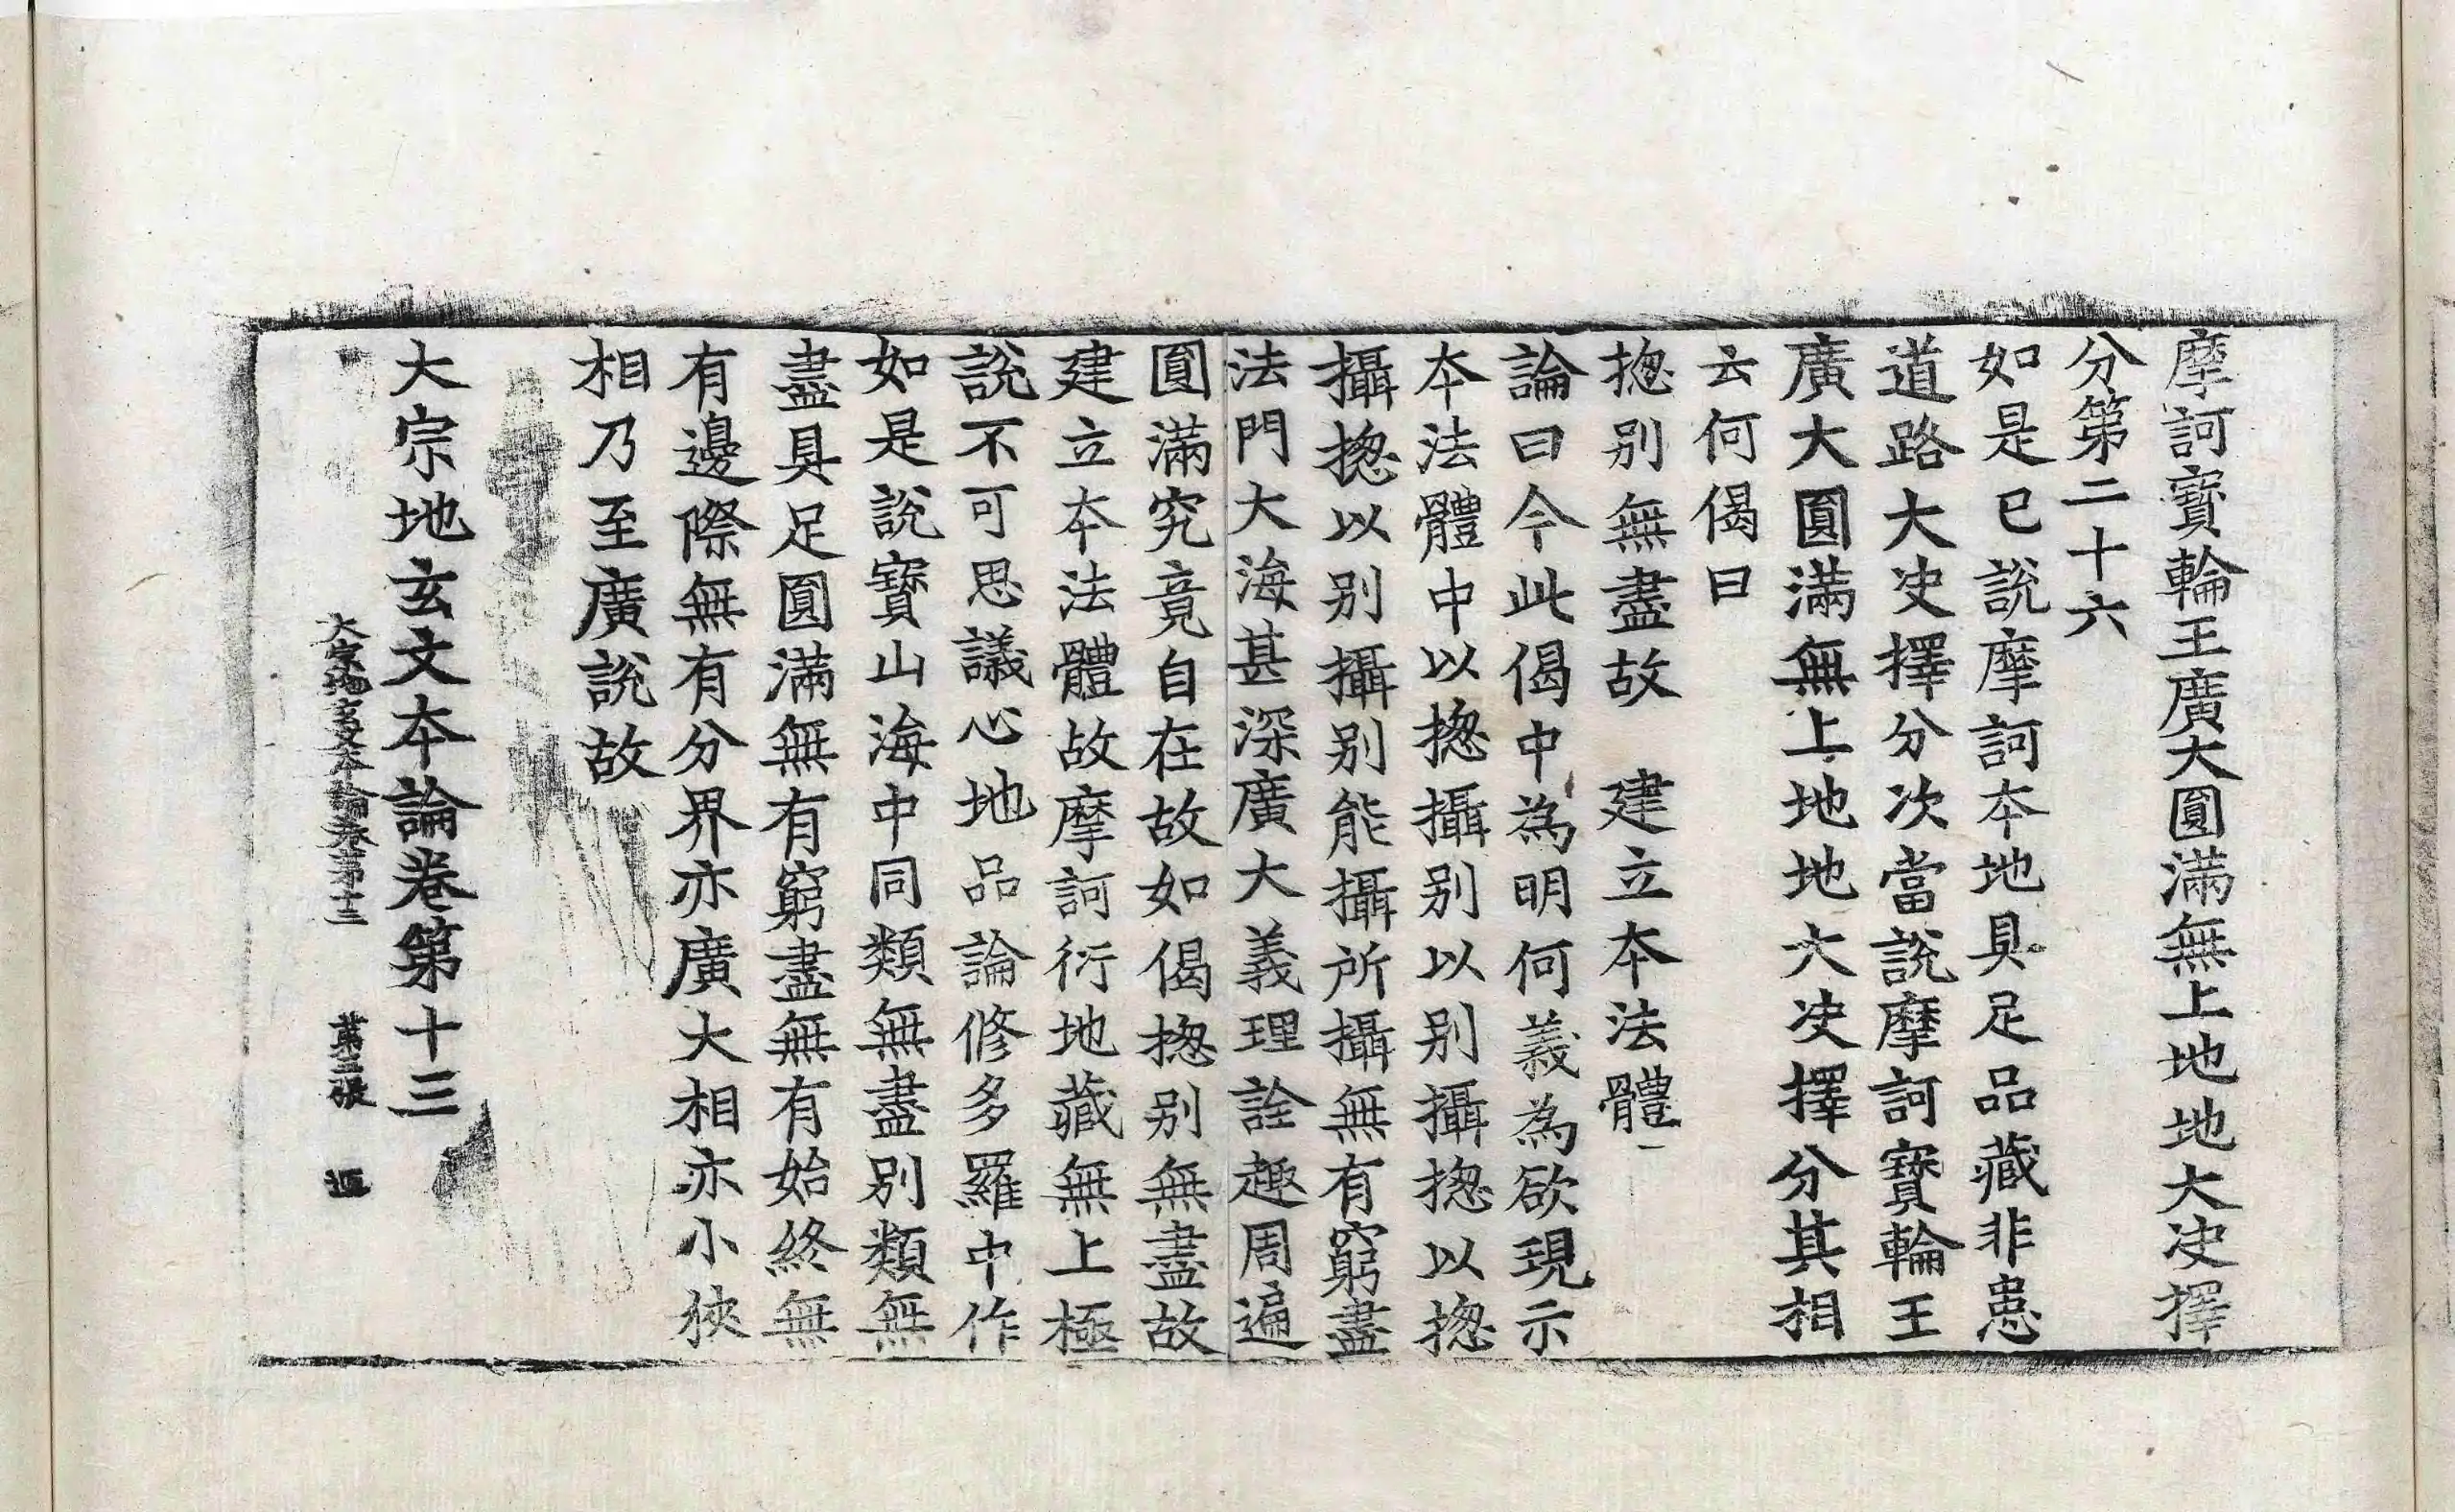 摩訶寶輪王廣大圓滿無上地地大决擇
分第二十六
如是已說摩訶夲地具足品藏非患
道路大决擇分次當說摩訶寶輪王
廣大圓滿無上地地大决擇分其相
云何偈曰
揔别無盡故　建立夲法體
論曰今此偈中為明何義為欲現示
夲法體中以揔攝别以别攝揔以揔
攝揔以别攝别能攝所攝無有窮盡
法門大海甚深廣大義理詮趣周遍
圓滿究竟自在故如偈揔别無盡故
建立夲法體故摩訶衍地藏無上極
說不可思議心地品論修多羅中作
如是說寶山海中同類無盡別類無
盡具足圓滿無有窮盡無有始終無
有邊際無有分界亦廣大相亦小狹
相乃至廣說故
大宗地玄文夲論卷第十三
大宗地玄文夲論卷第十三　第三張